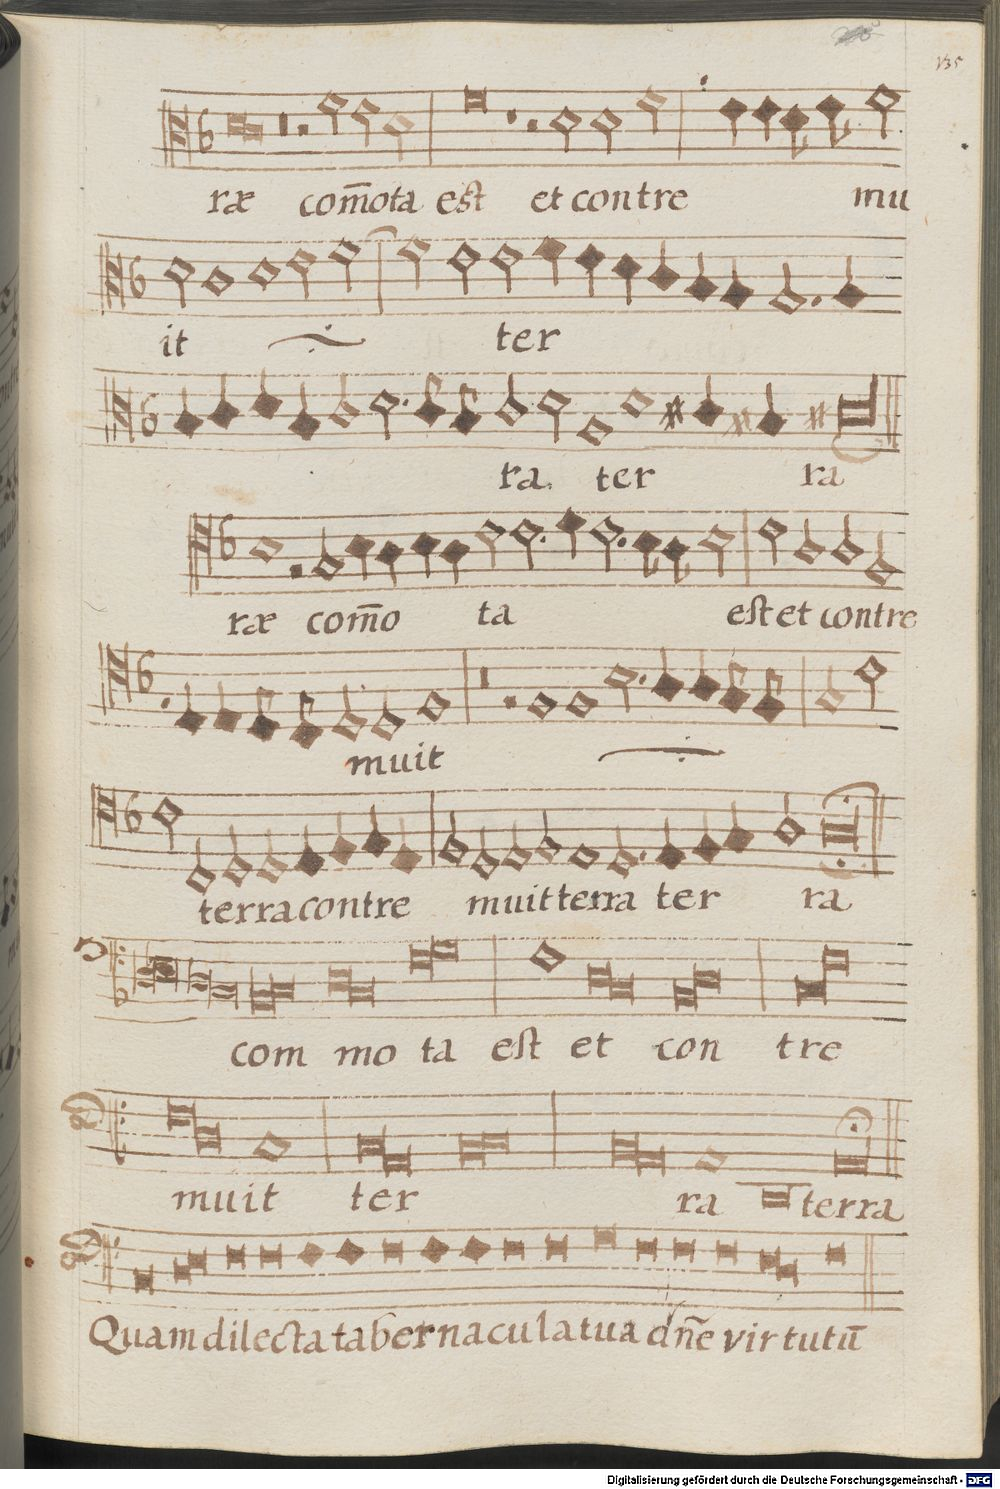 135
ræ com̄ota est et contre mu
it ter
ra ter ra
ræ com̄o ta est et contre
muit
terra contre muit terra ter ra
com mo ta est et con tre
muit ter ra terra
Quam dilecta tabernacula tua dn̄e virtutū
Digitalisierung gefördert durch die Deutsche Forschungsgemeinschaft - DFG